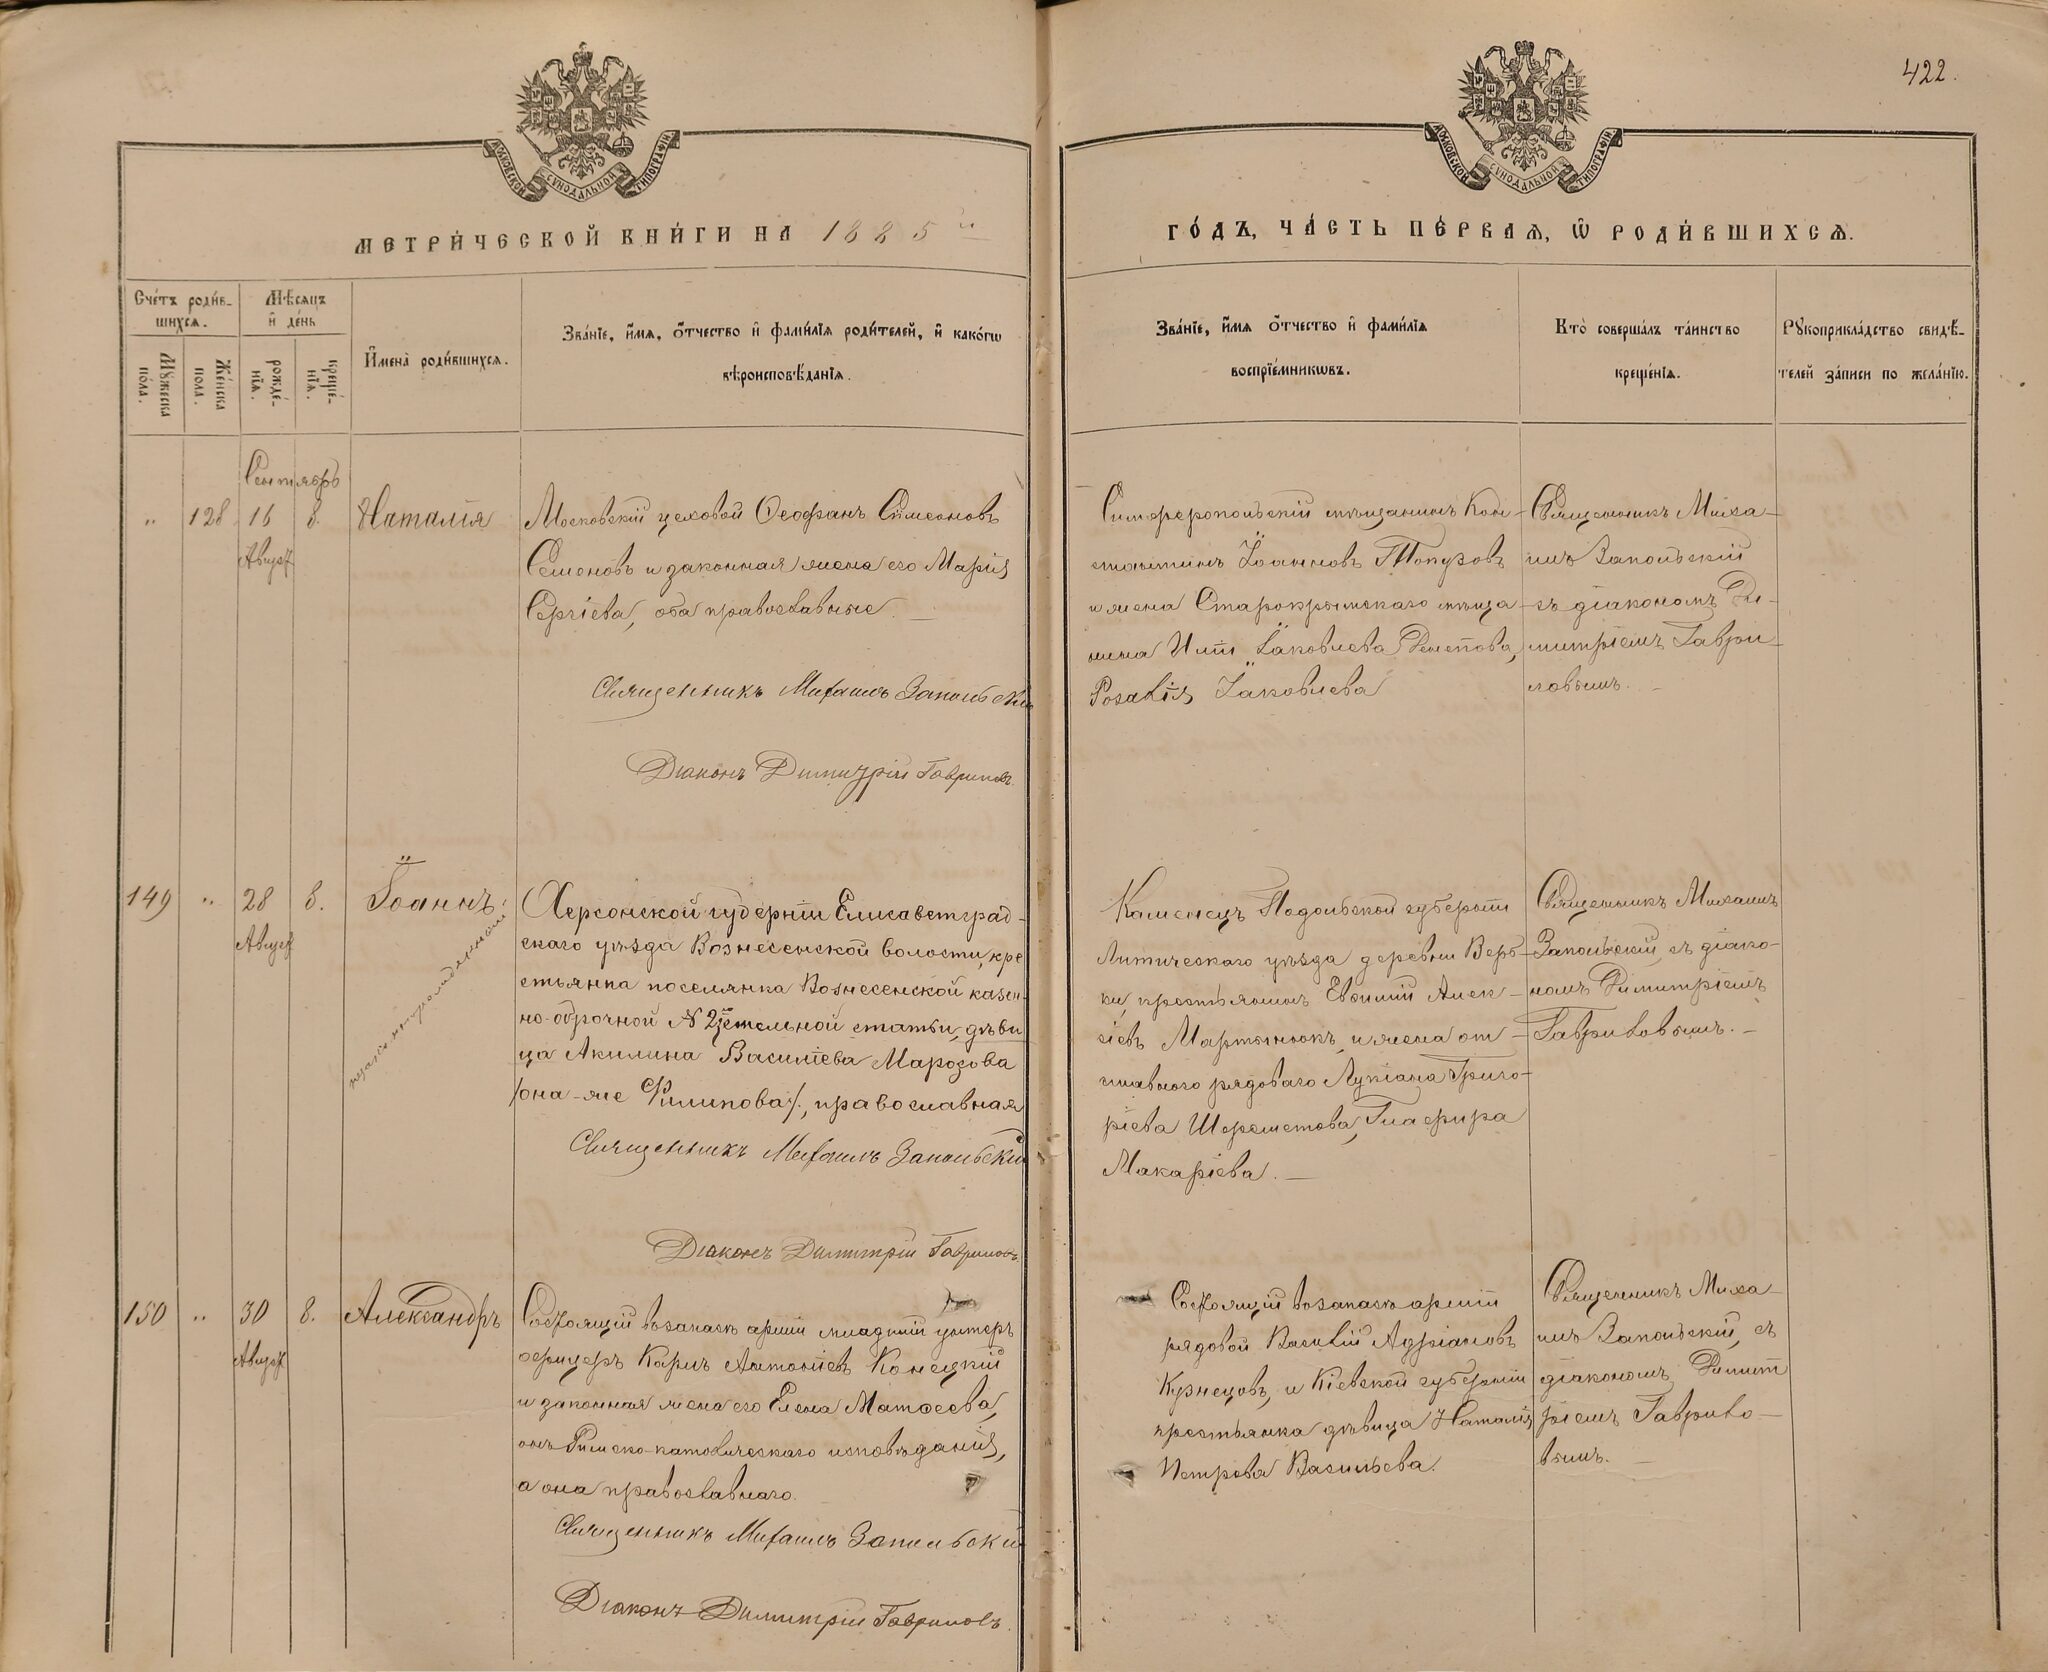 422.
МОСКОВСКОЙ СѴНОДАЛЬНОЙ ТИПОГРАФІИ
МОСКОВСКОЙ СѴНОДАЛЬНОЙ ТИПОГРАФІИ
МЕТРИ́ЧЕСКОЙ КНИ́ГИ НА 1885й
ГО́ДЪ, ЧА́СТЬ ПЕ́РВАЯ, Ѡ РОДИ́ВШИХСЯ.
Сче́тъ роди́в-
шихся.
Мꙋ́жеска
по́ла.
Же́нска
пола.
Мѣ́сяцъ
и де́нь
рожде́-
нїя.
креще́-
нїя.
И҆мена̀ роди́вшихся.
Зва́нїе, и҆́мя, ѻ҆́тчество и҆ фами́лїя роди́телей, и҆ како́гѡ
вѣроисповѣ́данїя.
Зва́нїе, и҆́мя ѻ҆́тчество и҆ фами́лїя
воспрїе́мникѡвъ.
Кто̀ соверша́лъ та́инство
креще́нїя.
Рꙋкоприкла́дство свидѣ́-
телей за́писи по жела́нїю.
Сентябрь
" 128 16 8. Наталія
Август
Московскій цеховой Ѳеофанъ Сѵмеоновъ
Семеновъ и законная жена его Марія
Сергіева, оба православные.
Священникъ Михаилъ Запольскій
Діаконъ Димитрій Гавриловъ.
Симферопольскій мѣщанинъ Кон-
стантинъ Іоанновъ Топузовъ
и жена Старокрымскаго мѣща-
нина Иліи Іаковлева
Розалія Іаковлева
Священникъ Миха-
илъ Запольскій
съ діакономъ Ди-
митріемъ Гаври-
ловымъ.
149 " 28 8. Іоаннъ.
Август
незаконнорожденный
Херсонской губерніи Елисаветград-
скаго уѣзда Вознесенской волости, кре
стьянка поселянка Вознесенской казен-
но-оброчной № 2й земельной статьи, дѣви
ца Акилина Василіева Марозова
/она-же Филипова/, православная
Священникъ Михаилъ Запольскій
Діаконъ Димитрій Гавриловъ.
Каменецъ Подольской губерніи
Литическаго уѣзда деревни Верб-
ки, крестьянинъ Евѳимій Алек-
сіевъ Мартынюкъ, и жена от-
ставного рядоваго Лукіана Григо-
ріева Шереметова, Глафира
Макаріева.
Священникъ Михаилъ
Запольскій, съ діако-
номъ Димитріемъ
Гавриловымъ.
150 " 30 8. Александръ
Август
Состоящій въ запасѣ арміи младшій унтеръ
офицеръ Карлъ Антоніевъ Конецкій
и законная жена его Елена Матѳеева,
онъ Римско-католическаго исповѣданія,
а она православнаго.
Священникъ Михаилъ Запольскій
Діаконъ Димитрій Гавриловъ.
Состоящій въ запасѣ арміи
рядовой Василій Адріановъ
Кузнецовъ, и Кіевской губерніи
крестьянка дѣвица Наталія
Петрова Васильева.
Священникъ Миха-
илъ Запольскій, съ
діакономъ Димит
ріемъ Гаврило-
вымъ.